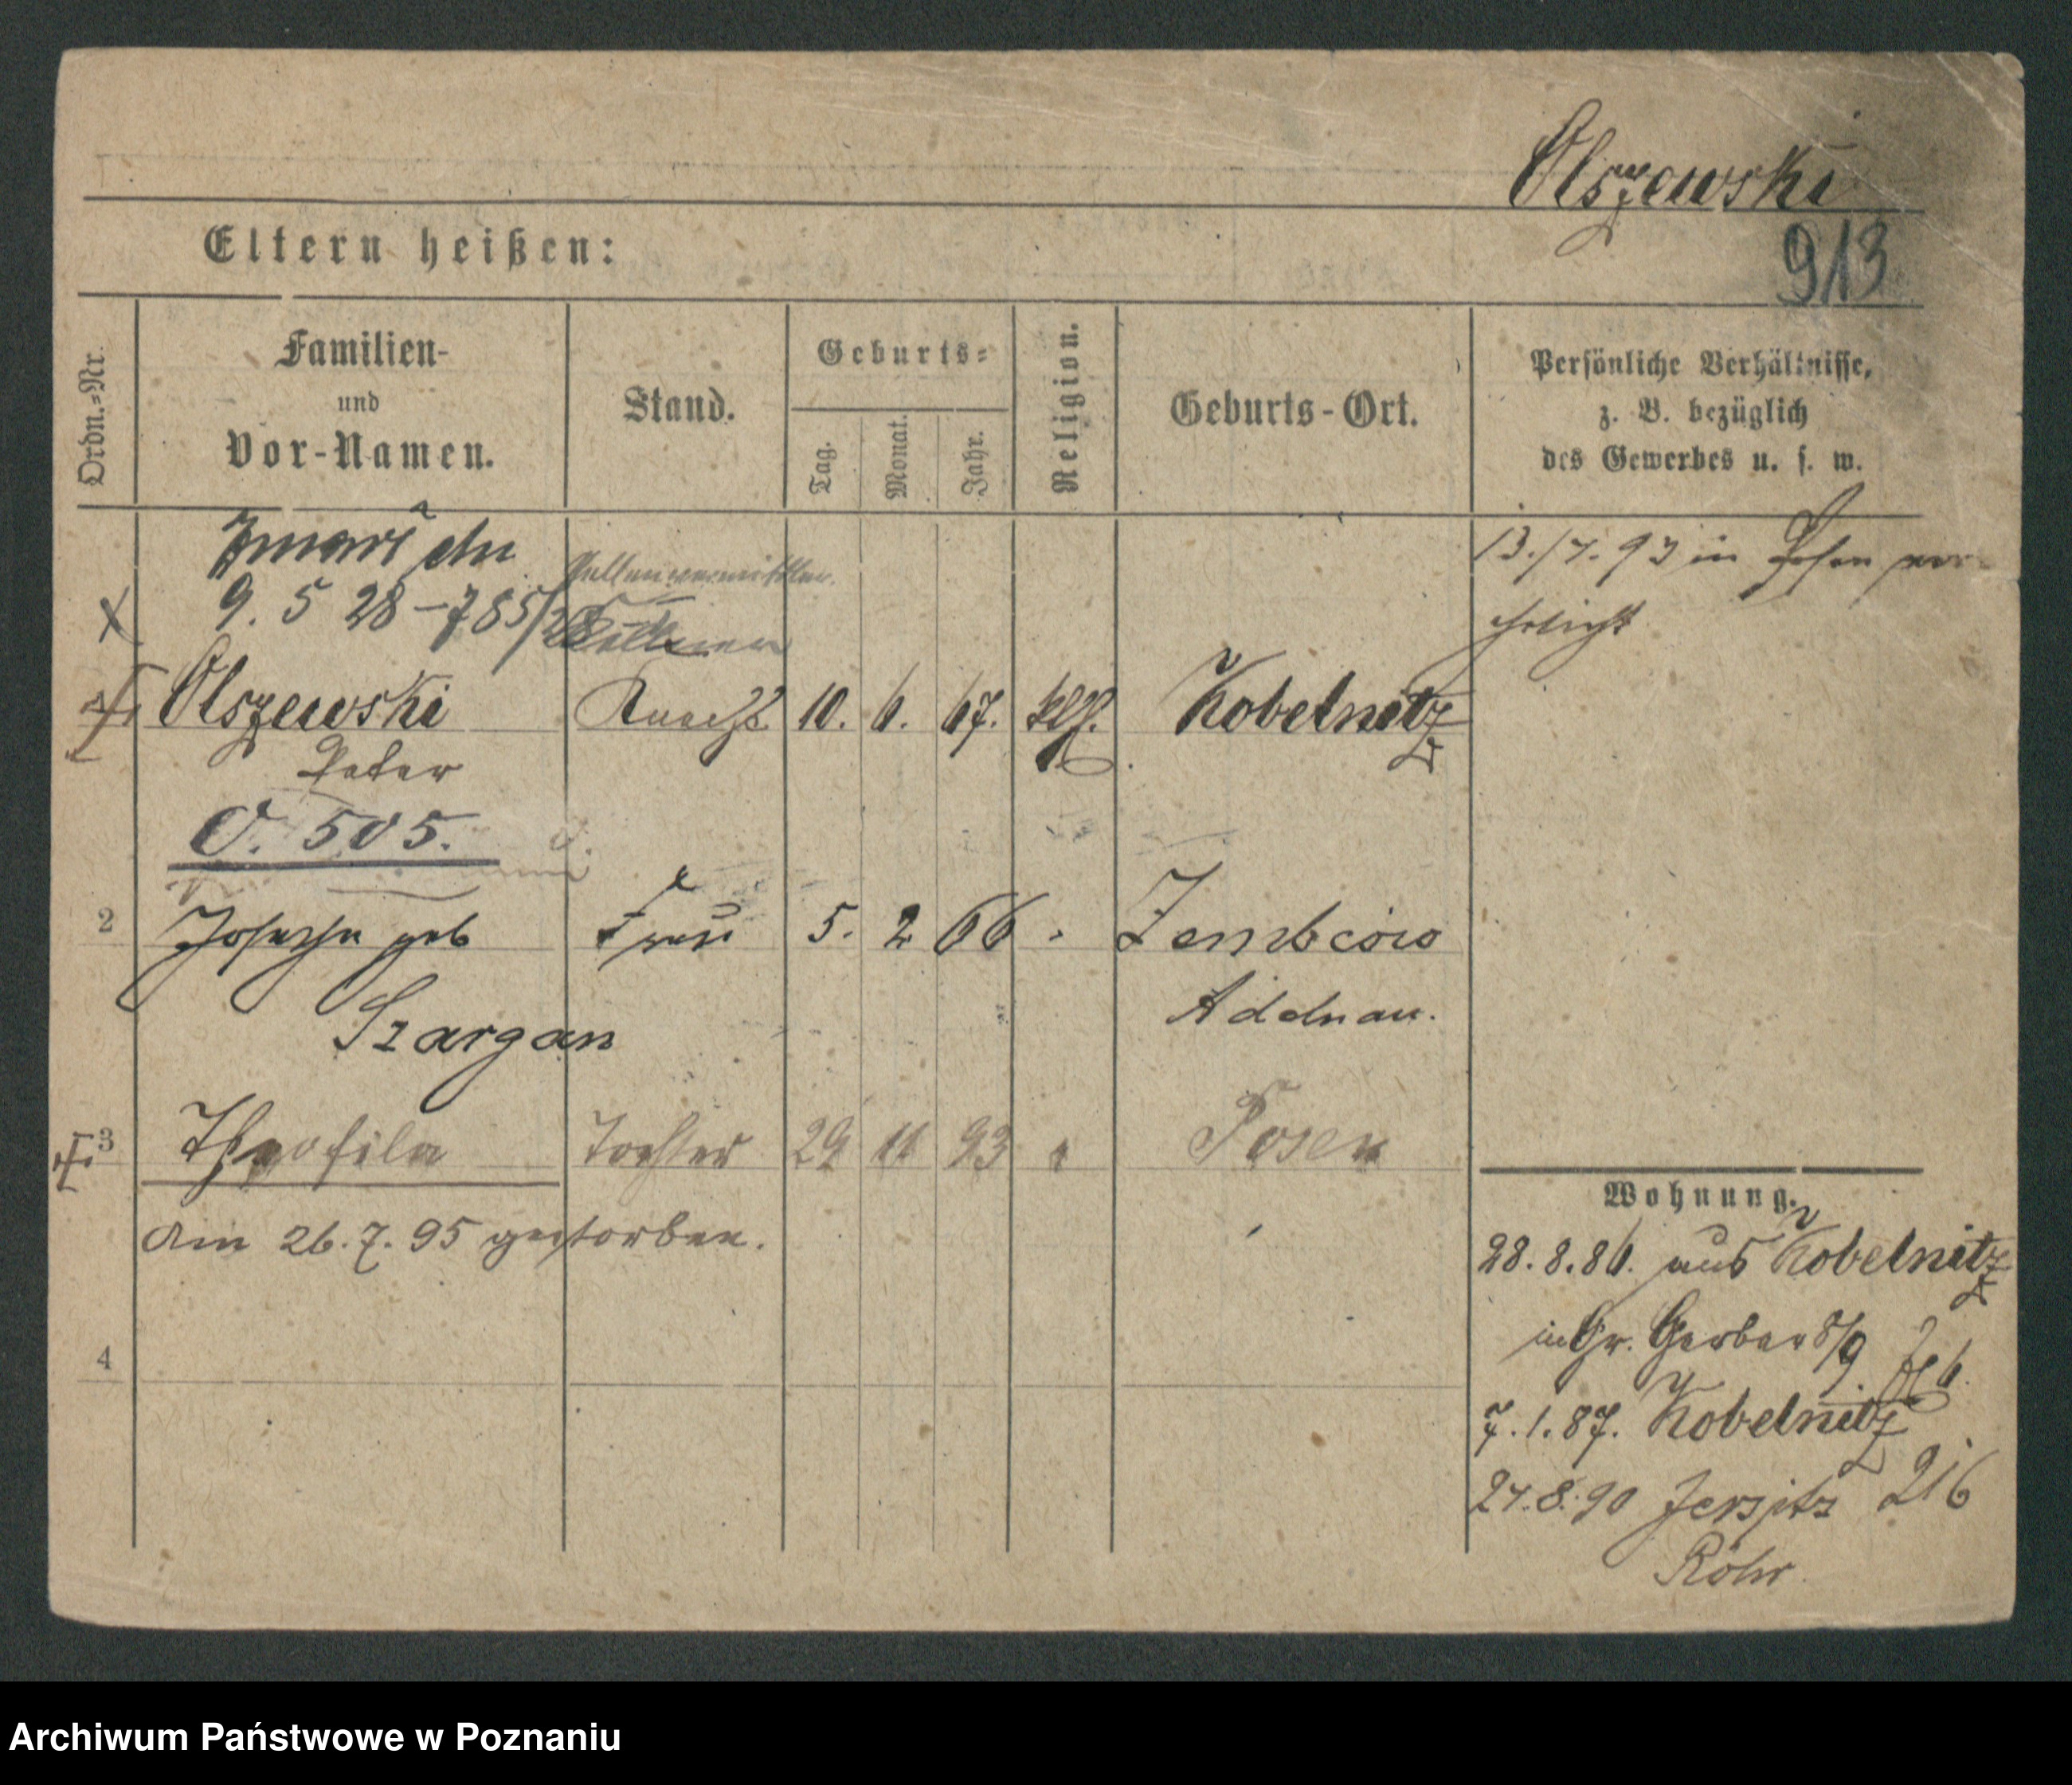 Olszewski
Eltern heißen:
913
Ordn.-Nr.
Familien-
und
Vor-Namen.
Stand.
Geburts-
Tag.
Monat.
Jahr.
Religion.
Geburts-Ort.
Persönliche Verhältnisse,
z. B. bezüglich
des Gewerbes u. s. w.
Zmarł dn
9. 5 28 – 785/28
Stellenvermittler.
13./7. 93 in Posen ver-
ehelicht
Olszewski Knecht 10. 6. 67. kth. Kobelnitz
Peter
O. 505.
2 Josepha geb Frau 5. 2 66 Zembców
Szargan Adelnau.
3 Theofila Tochter 29 11 93 Posen
Am 26.7.95 gestorben.
4
Wohnung.
28.8.86. aus Kobelnitz
in Gr. Gerber 8/9
7.1.87. Kobelnitz
27.8.90 Jersitz 216
Röhr